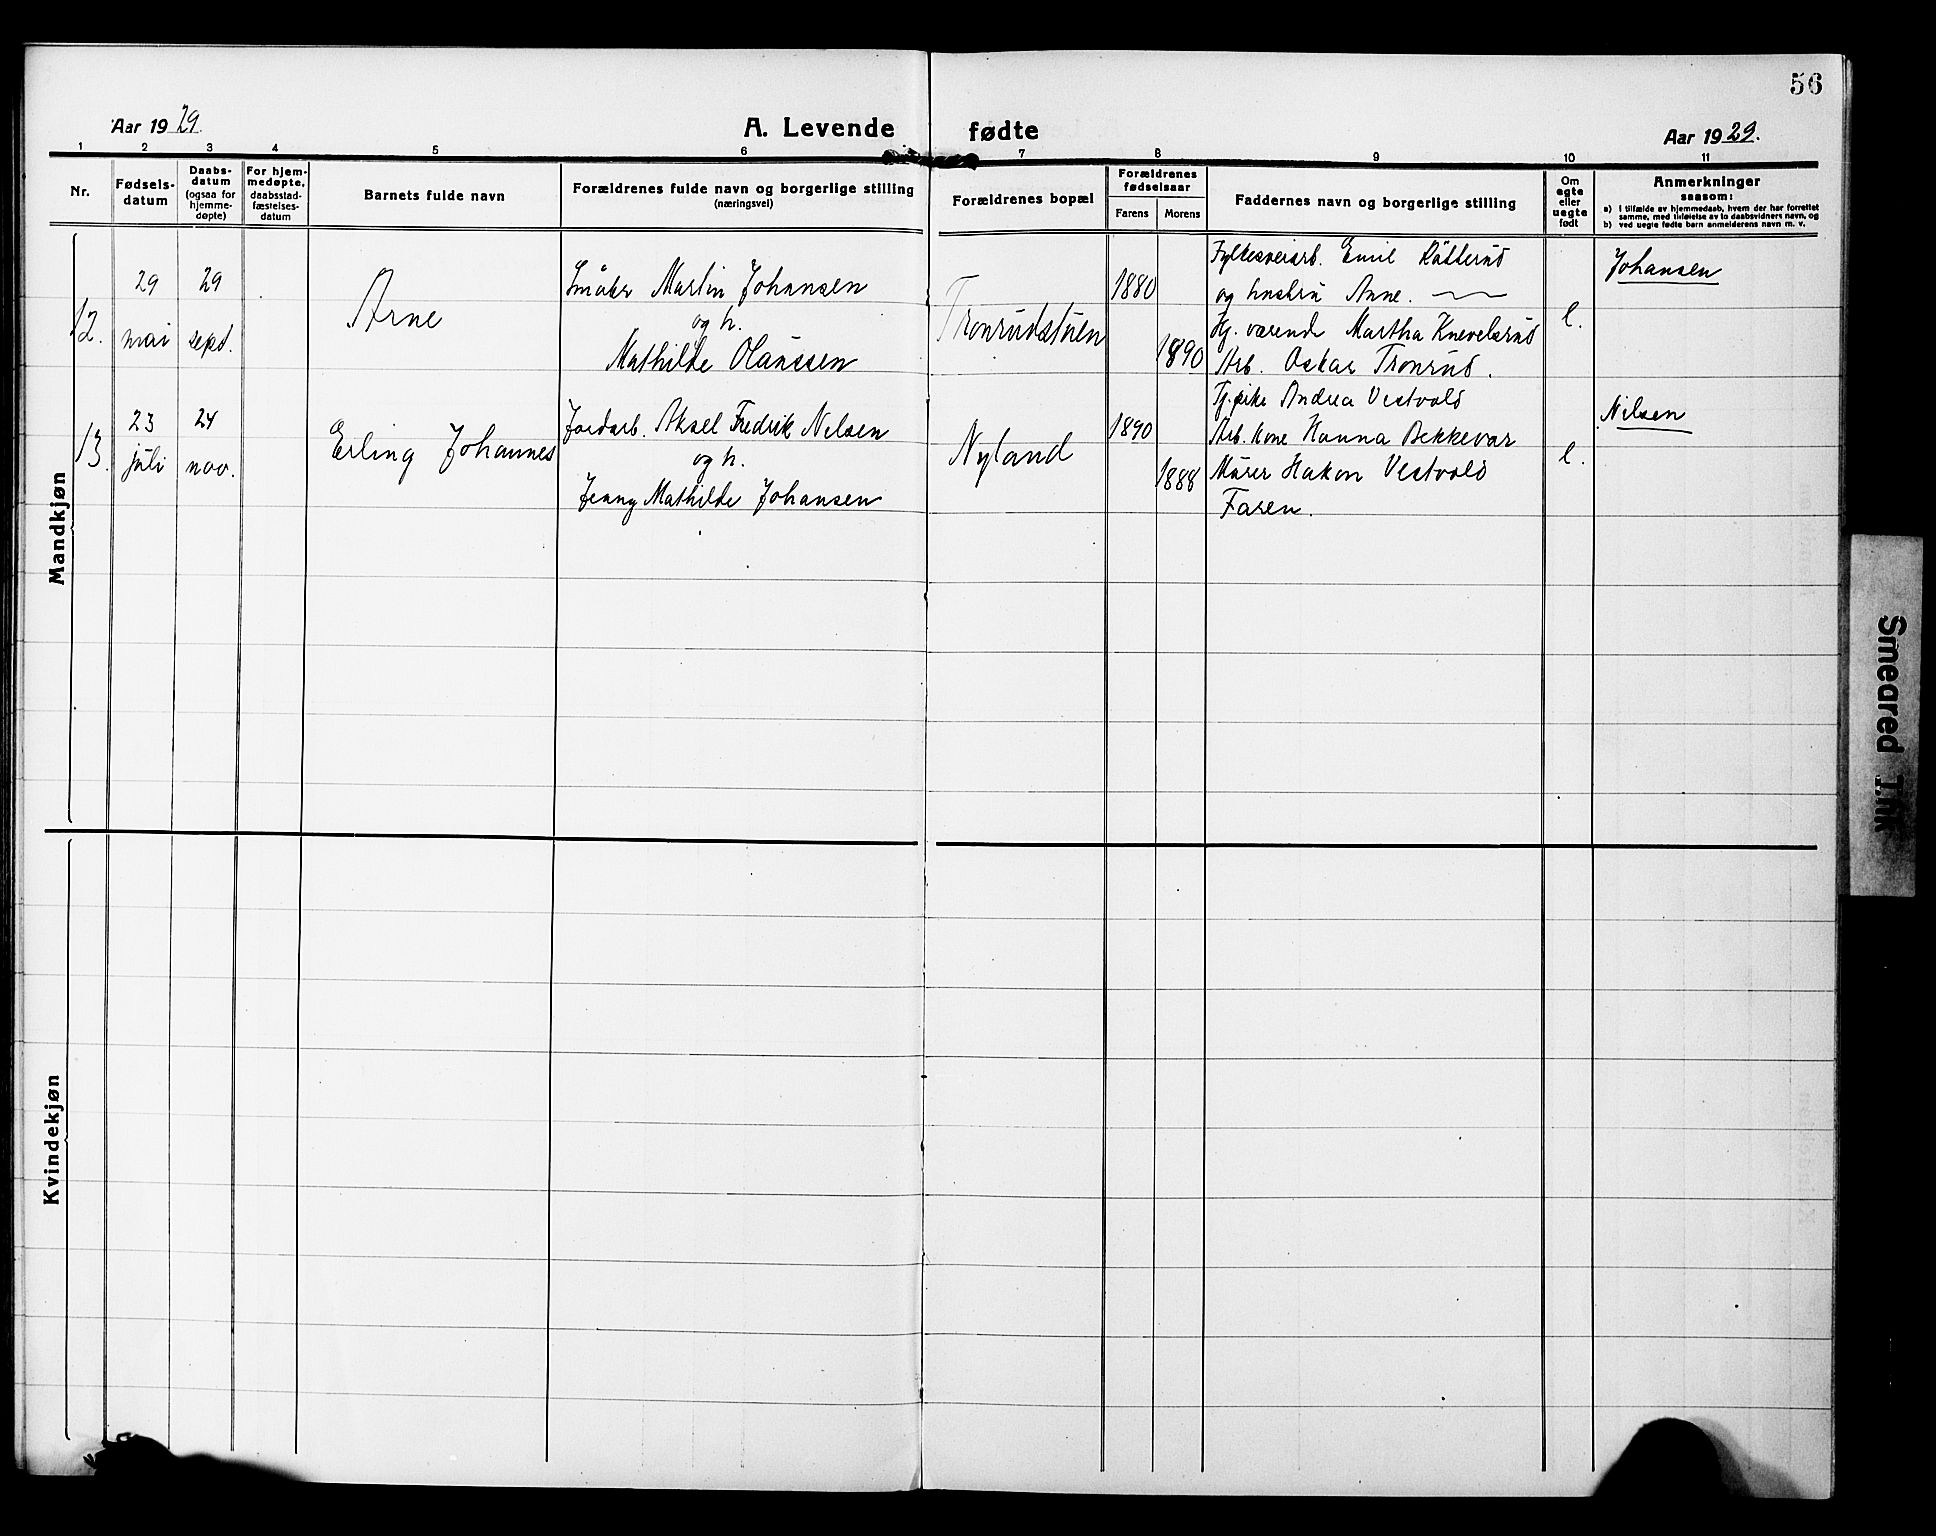 56
Aar 1929.
A. Levende fødte
Aar 1929.
1 2 3 4 5 6 7 8 9 10 11
Nr.
Fødsels-
datum
Daabs-
datum
(ogsaa for
hjemme-
døpte)
For hjem-
medøpte,
daabsstad-
fæstelses-
datum
Barnets fulde navn
Forældrenes fulde navn og borgerlige stilling
(næringsvei)
Forældrenes bopæl
Forældrenes
fødselsaar
Farens
Morens
Faddernes navn og borgerlige stilling
Om
egte
eller
uegte
født
Anmerkninger
saasom:
a) i tilfælde av hjemmedaab, hvem der har forrettet
samme, med tilføielse av to daabsvidners navn, og
b) ved uegte fødte barn anmelderens navn m. v.
Mandkjøn
12.
29
mai
29
sept.
Arne
Småbr Martin Johansen
og h.
Mathilde Olaussen
Tronrudstuen
1880
1890
Fylkesveiarb. Emil Råtterud
og hustru Anne. —
Hj. værende Martha Knevelsrud
Arb. Oskar Tronrud.
e.
Johansen
13.
23
juli
24
nov.
Erling Johannes
Jordarb. Aksel Fredrik Nilsen
og h.
Jenny Mathilde Johansen
Nyland
1890
1888
Tj.pike Andrea Vestvold
Arb. kone Hanna Bekkevar
Murer Hakon Vestvold
Faren.
e.
Nilsen
Kvindekjøn
Smeared Ink